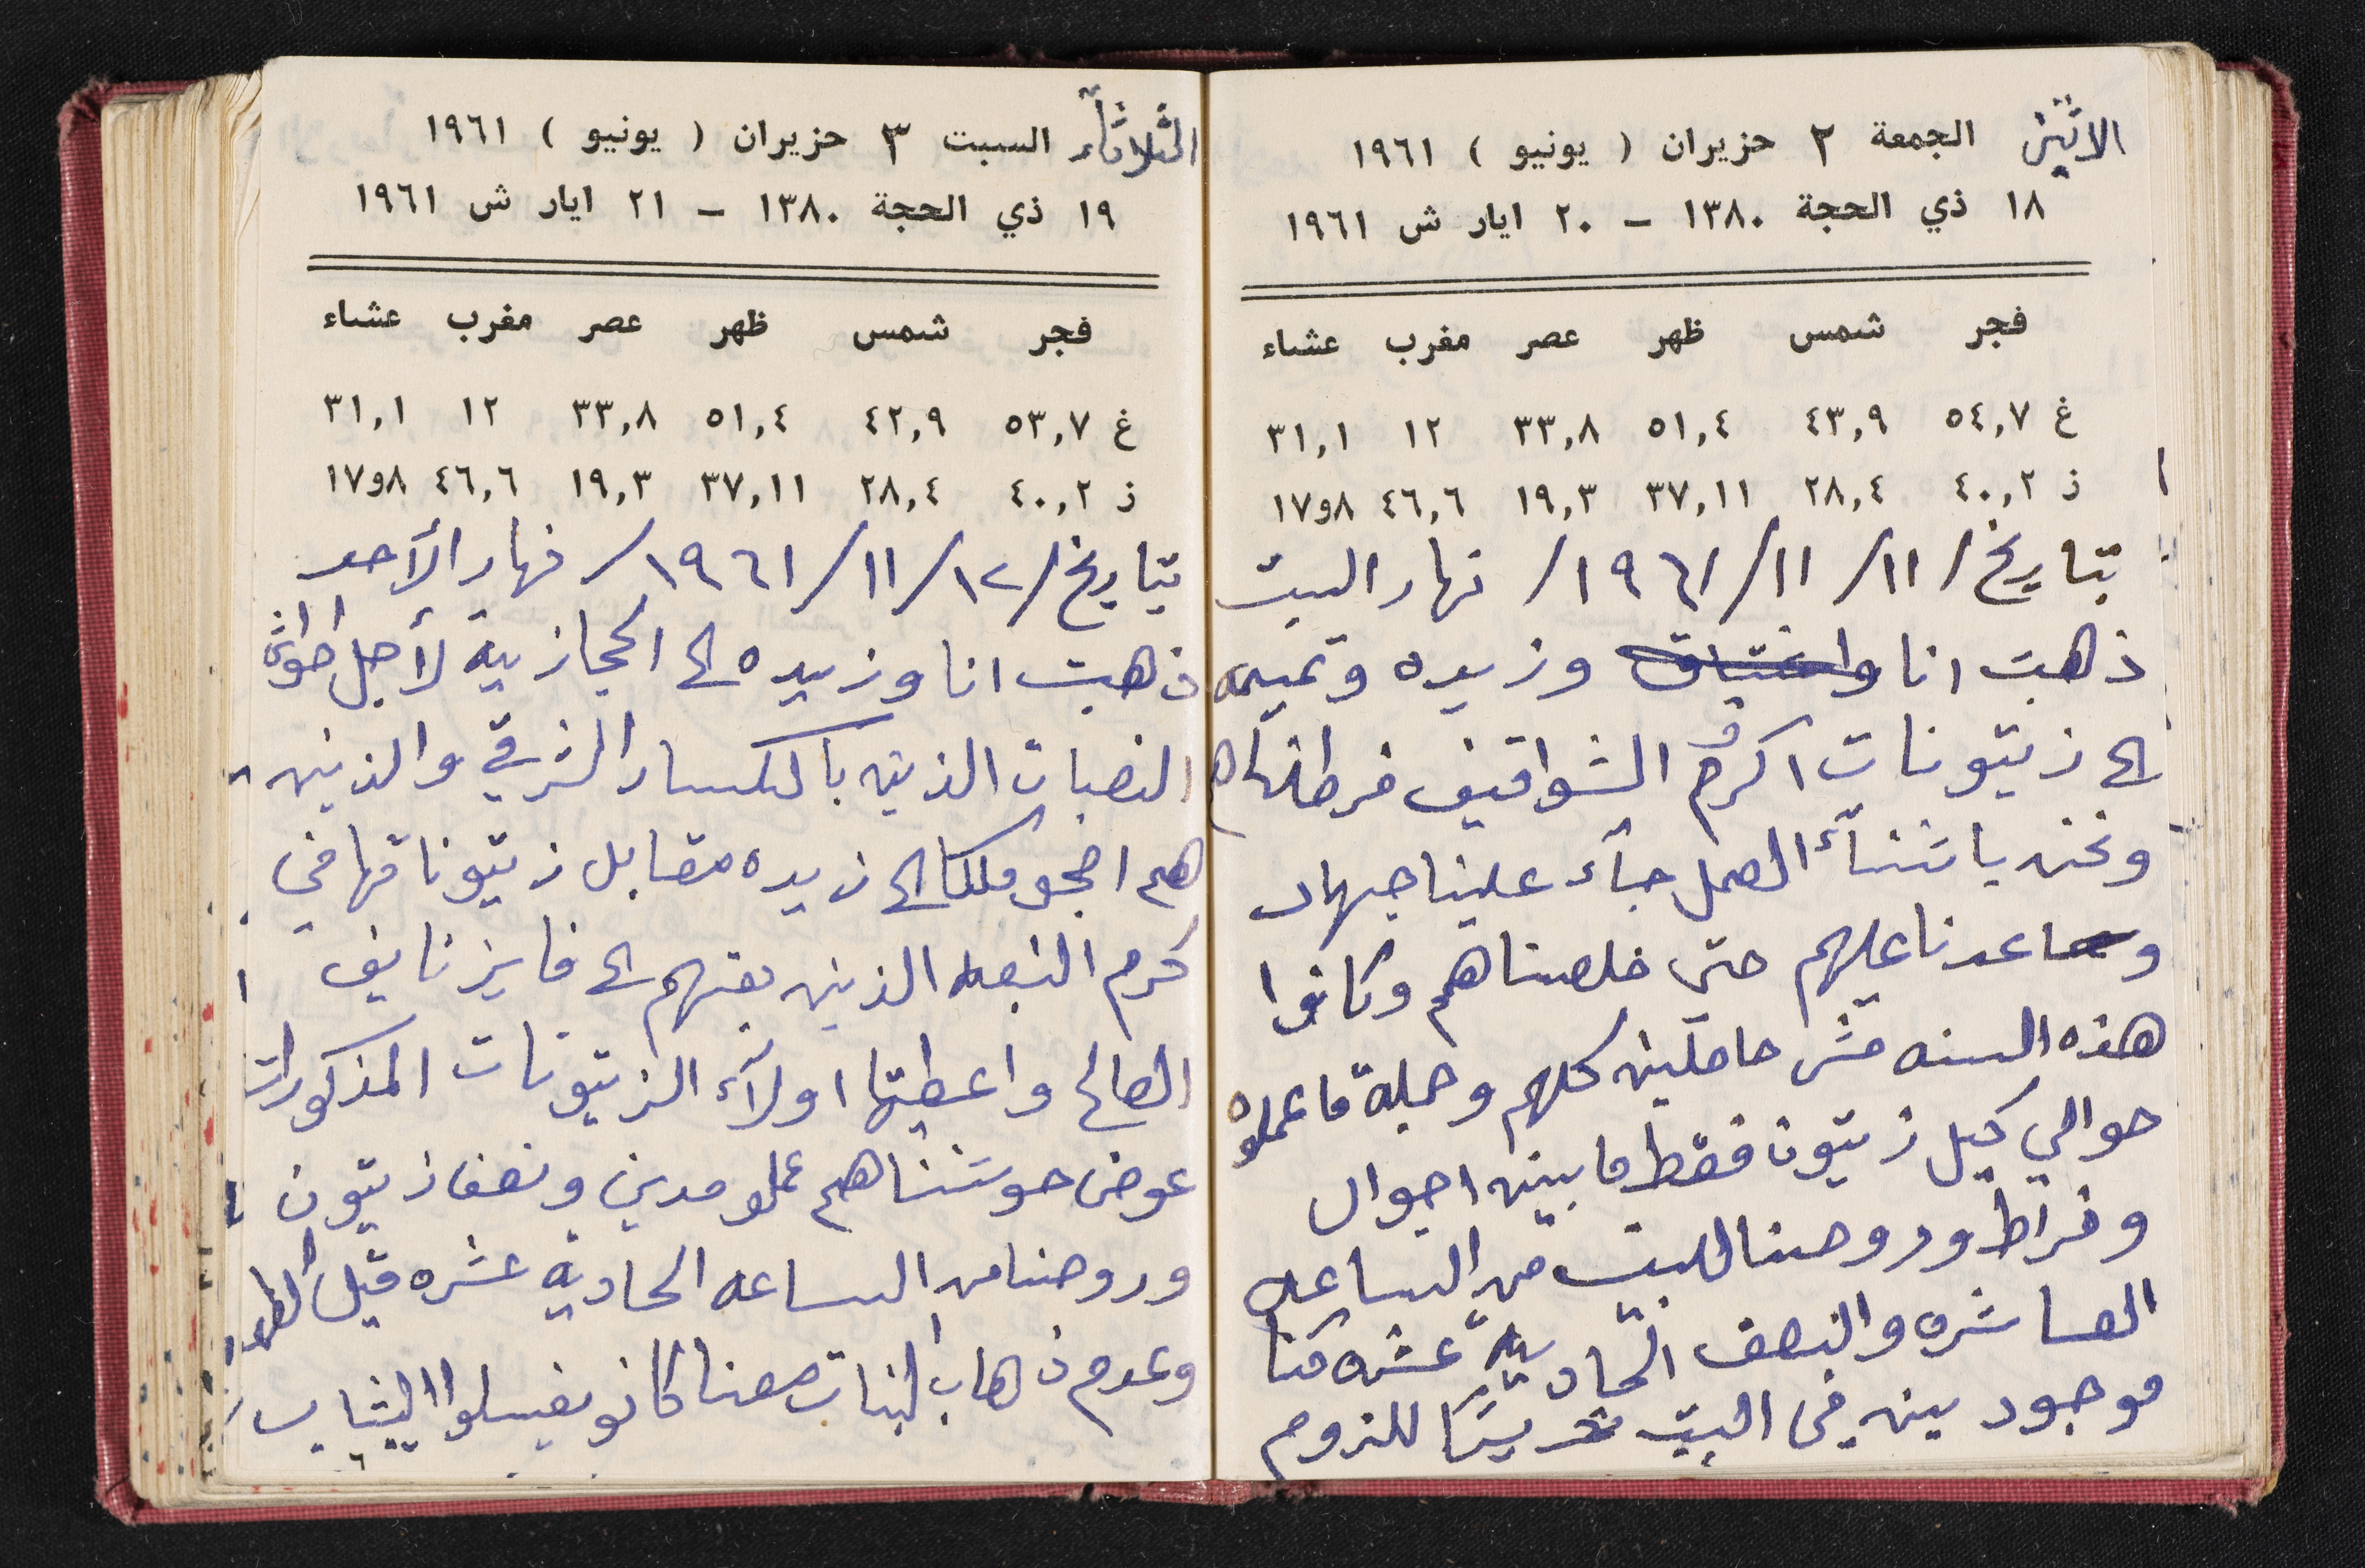 الاثنين الجمعة ٢ حزيران ( يونيو ) ١٩٦١
١٨ ذي الحجة ١٣٨٠ - ٢٠ ايار ش ١٩٦١
فجر شمس ظهر عصر مغرب عشاء
غ ٥٤,٧ ٤٣,٩ ٥١,٤ ٣٣,٨ ١٢ ٣١,١
ز ٤٠,٢ ٢٨,٤ ٣٧,١١ ١٩,٣ ٤٦,٦ ٨و١٧
بتاريخ / ١١ / ١١ / ١٩٦١ / نهار السبت
ذهبت انا وزيده وتميمه
الى زيتونات اكرم الشواقيف فرطناهم
ونحن باثنآء العمل جآء علينا جهاد
وساعدنا عليهم حتى خلصناهم وكانوا
هذه السنه مش حاملين كلهم وجملة ما عملوا
حوالي كيل زيتون فقط ما بين اجوال
وفراط وروحنا للبيت من الساعه
العاشره والنصف الحادية عشره كنا
موجودين في البيت للزوم
الثلاثآء السبت ٣ حزيران ( يونيو ) ١٩٦١
١٩ ذي الحجة ١٣٨٠ - ٢١ ايار ش ١٩٦١
فجر شمس ظهر عصر مغرب عشاء
غ ٥٣,٧ ٤٢,٩ ٥١,٤ ٣٣,٨ ١٢ ٣١,١
ز ٤٠,٢ ٢٨,٤ ٣٧,١١ ١٩,٣ ٤٦,٦ ٨و١٧
بتاريخ / ١٢ / ١١ / ١٩٦١ / نهار الآحد
ذهبت انا وزيده الى الحجازية لأجل حواش
النصبات الذين بالكسار الشرقي والذين
هم اضحو ملكا الى زيده مقابل زيتوناتها في
كرم النبعه الذين بعتهم الى فايز نايف
الصالح واعطيتها اولآء الزيتونات المذكورات
عوض حوشناهم عملو مدين ونصف زيتون
وروحنا من الساعه الحادية عشره قبل الظهر
وعدم ذهاب البنات معنا كانو يغسلوا الثياب